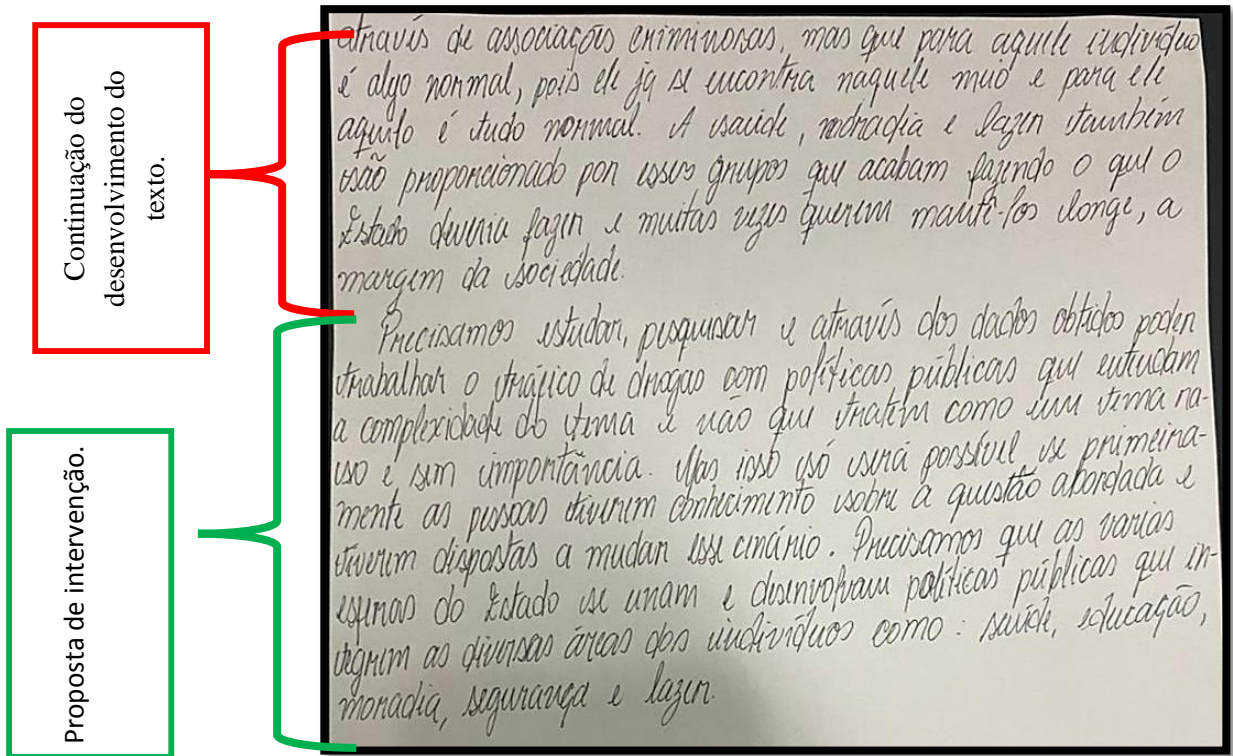 Continuação do
desenvolvimento do
texto.
Proposta de intervenção.
através de associações criminosas, mas que para aquele indivíduo
é algo normal, pois ele já se encontra naquele meio e para ele
aquilo é tudo normal. A saúde, moradia e lazer também
são proporcionado por esses grupos que acabam fazendo o que o
Estado deveria fazer e muitas vezes querem mantê-los longe, a
margem da sociedade.
Precisamos estudar, pesquisar e através dos dados obtidos poder
trabalhar o tráfico de drogas com políticas públicas que entendam
a complexidade do tema e não que tratem como um tema ra-
so e sem importância. Mas isso só será possível se primeira-
mente as pessoas tiverem conhecimento sobre a questão abordada e
tiverem dispostas a mudar esse cenário. Precisamos que as varias
esferas do Estado se unam e desenvolvam políticas públicas que in-
tegrem as diversas áreas dos indivíduos como: saúde, educação,
moradia, segurança e lazer.